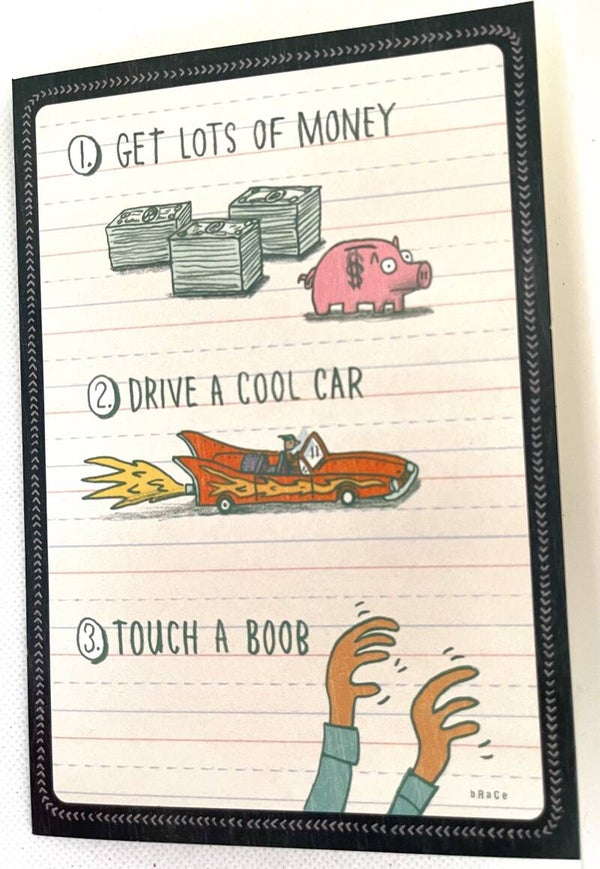 1. GET LOTS OF MONEY
$
2. DRIVE A COOL CAR
3. TOUCH A BOOB
bRaCe